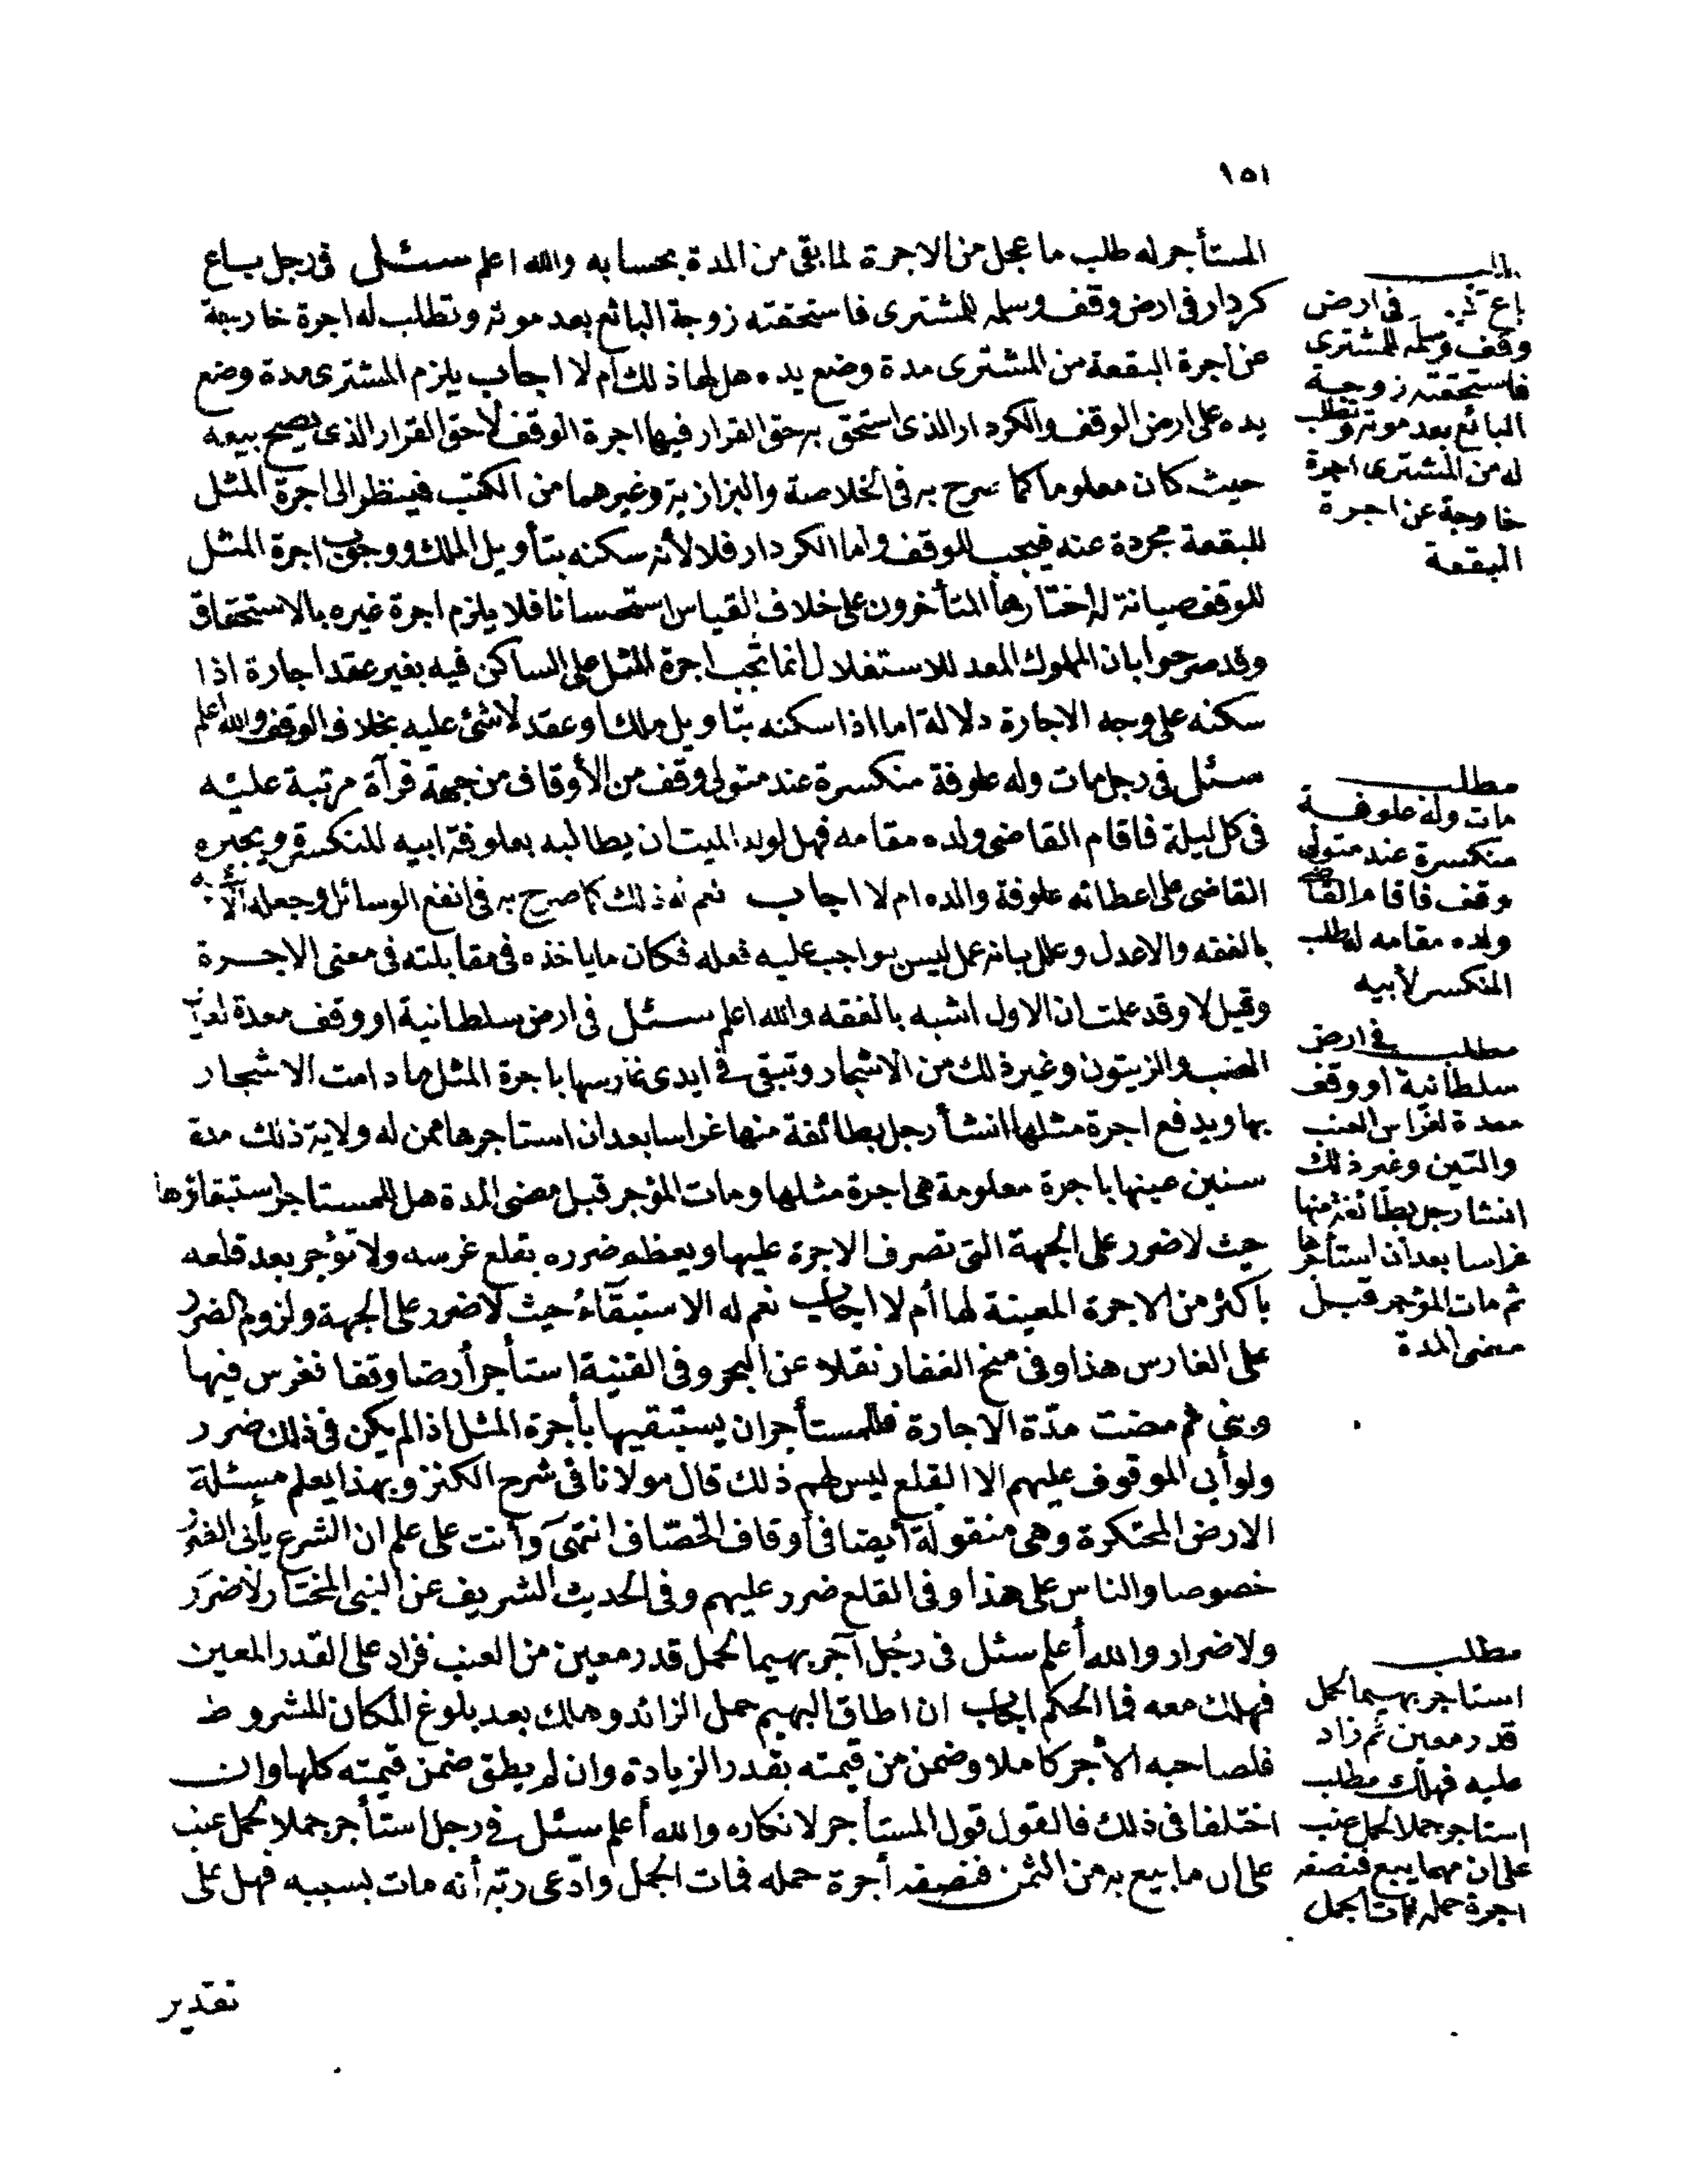 ١٥١
المستأجر له طلب ما عجل من الاجرة لما بقى من المدة بحسابه والله اعلم سئل فى رجل باع
كردار فى ارض وقف وسلمه للمشترى فاستحقته زوجة البائع بعد موته وتطلب له اجرة خارجة
عن اجرة البقعة من المشترى مدة وضع يده هل لها ذلك ام لا اجاب يلزم المشترى مدة وضع
يده على ارض الوقف والكردار الذى استحق به حق القرار فيها اجرة الوقف لا حق القرار الذى يصح بيعه
حيث كان معلوما كما صرح به فى الخلاصة والبزازية وغيرهما من الكتب فينظر الى اجرة المثل
للبقعة مجردة عنه فيجب للوقف واما الكردار فلا لأنه سكنه بتأويل الملك ووجوب اجرة المثل
للوقف صيانة له اختارها المتأخرون على خلاف القياس استحسانا فلا يلزم اجرة غيره بالاستحقاق
وقد صرحوا بان المملوك المعد للاستغلال انما تجب اجرة المثل على الساكن فيه بغير عقد اجارة اذا
سكنه على وجه الاجارة دلالة اما اذا سكنه بتاويل ملك او عقد لا شئ عليه بخلاف الوقف والله اعلم
سئل فى رجل مات وله علوفة منكسرة عند متولى وقف من الأوقاف من جهة قرآة مرتبة عليه
فى كل ليلة فاقام القاضى ولده مقامه فهل لولد الميت ان يطالبه بعلوفة ابيه المنكسرة ويجبره
القاضى على اعطائه علوفة والده ام لا اجاب نعم له ذلك كما صرح به فى انفع الوسائل وجعله الأشبه
بالفقه والاعدل وعلل بانه عمل ليس بواجب عليه فعله فكان ما ياخذه فى مقابلته فى معنى الاجرة
وقيل لا وقد علمت ان الاول اشبه بالفقه والله اعلم سئل فى ارض سلطانية او وقف معدة لغراس
العنب والزيتون وغير ذلك من الاشجار وتبقى فى ايدى غارسها باجرة المثل ما دامت الاشجار
بها ويدفع اجرة مثلها انشأ رجل بطائفة منها غراسا بعد ان استاجرها ممن له ولاية ذلك مدة
سنين عينها باجرة معلومة هى اجرة مثلها ومات المؤجر قبل مضى المدة هل للمستاجر استبقاؤها
حيث لا ضرر على الجهة التى تصرف الاجرة عليها ويعظم ضرره بقلع غرسه ولا تؤجر بعد قلعه
باكثر من الاجرة المعينة لها أم لا اجاب نعم له الاستبقاء حيث لا ضرر على الجهة ولزوم الضرر
على الغارس هذا وفى منح الغفار نقلا عن البحر وفى القنية استأجر أرضا وقفا فغرس فيها
وبنى ثم مضت مدّة الاجارة فللمستأجر ان يستبقيها بأجرة المثل اذا لم يكن فى ذلك ضرر
ولو أبى الموقوف عليهم الا القلع ليس لهم ذلك قال مولانا فى شرح الكنز وبهذا يعلم مسئلة
الارض المحتكرة وهى منقولة أيضا فى أوقاف الخصّاف انتهى وأنت على علم ان الشرع يأبى الضرر
خصوصا والناس على هذا وفى القلع ضرر عليهم وفى الحديث الشريف عن النبى المختار لا ضرر
ولا ضرار والله أعلم سئل فى رجل آجر بهيما لحمل قدر معين من العنب فزاد على القدر المعين
فهلك معه فما الحكم اجاب ان اطاق البهيم حمل الزائد وهلك بعد بلوغ المكان المشروط
فلصاحبه الأجر كاملا وضمن من قيمته بقدر الزيادة وان لم يطق ضمن قيمته كلها وان
اختلفا فى ذلك فالقول قول المستأجر لانكاره والله أعلم سئل فى رجل استأجر جملا لحمل عنب
على ان ما بيع به من الثمن فنصفه أجرة حمله فمات الجمل وادّعى ربّه أنه مات بسببه فهل على
تقدير
باع فى ارض
وقف وسلمه للمشترى
فاستحقته زوجة
البائع بعد موته وتطلب
له من المشترى اجرة
خارجة عن اجرة
البقعة
مطلب
مات وله علوفة
منكسرة عند متولى
وقف فاقام القاضى
ولده مقامه له طلب
المنكسر لأبيه
مطلب فى ارض
سلطانية او وقف
معدة لغراس العنب
والتين وغير ذلك
انشا رجل بطائفة منها
غراسا بعد أن استأجرها
ثم مات المؤجر قبل
مضى المدة
مطلب
استاجر بهيما لحمل
قدر معين ثم زاد
عليه فهلك مطلب
استاجر جملا لحمل عنب
على ان مهما يبيع فنصفه
اجرة حمله فمات الجمل